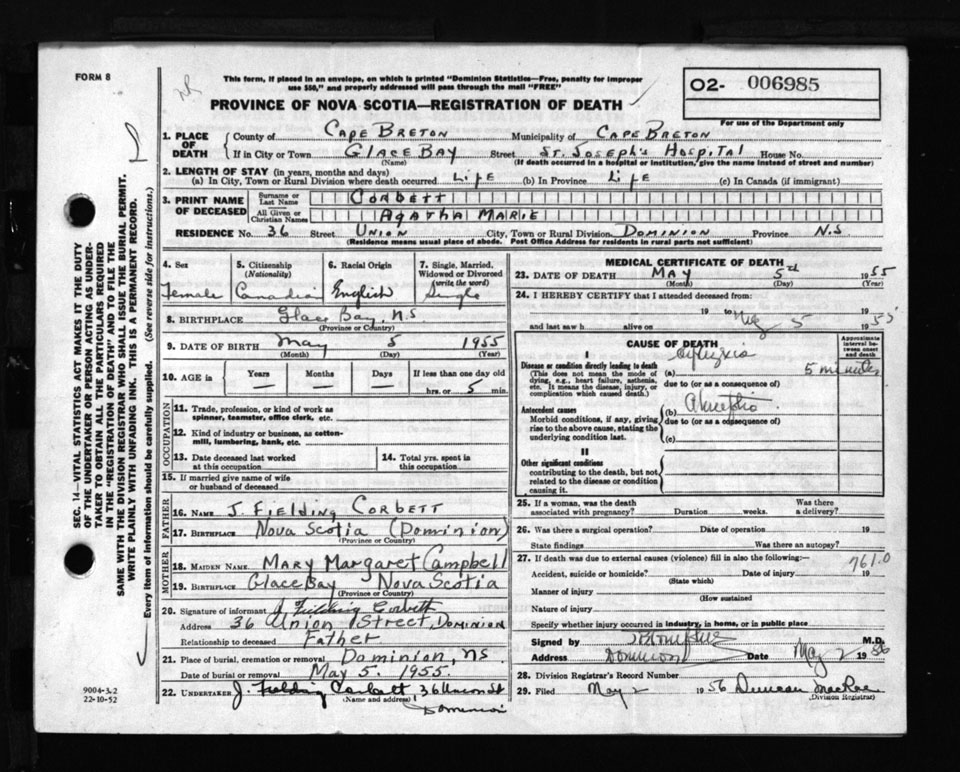 FORM 8
This form, if placed in an envelope, on which is printed "Dominion Statistics—Free, penalty for improper
use $50," and properly addressed will pass through the mail "FREE"
O2- 006985
For use of the Department only
PROVINCE OF NOVA SCOTIA—REGISTRATION OF DEATH
1. PLACE OF DEATH County of CAPE BRETON Municipality of CAPE BRETON
If in City or Town GLACE BAY Street ST. JOSEPH'S HOSPITAL House No.
(Name) (If death occurred in a hospital or institution, give the name instead of street and number)
2. LENGTH OF STAY (in years, months and days)
(a) In City, Town or Rural Division where death occurred LIFE (b) In Province LIFE (c) In Canada (if immigrant)
3. PRINT NAME OF DECEASED Surname or Last Name CORBETT
All Given or Christian Names AGATHA MARIE
RESIDENCE No. 36 Street UNION City, Town or Rural Division DOMINION Province N.S
(Residence means usual place of abode. Post Office Address for residents in rural parts not sufficient)
4. Sex Female
5. Citizenship (Nationality) Canadian
6. Racial Origin English
7. Single, Married, Widowed or Divorced (write the word) Single
8. BIRTHPLACE Glace Bay, N.S
(Province or Country)
9. DATE OF BIRTH May 5 1955
(Month) (Day) (Year)
10. AGE in Years — Months — Days — If less than one day hrs. or 5 min.
OCCUPATION
11. Trade, profession, or kind of work as spinner, teamster, office clerk, etc.
12. Kind of industry or business, as cotton-mill, lumbering, bank, etc.
13. Date deceased last worked at this occupation
14. Total yrs. spent in this occupation
15. If married give name of wife or husband of deceased
FATHER
16. NAME J. FIELDING CORBETT
17. BIRTHPLACE NOVA SCOTIA (DOMINION)
(Province or Country)
MOTHER
18. MAIDEN NAME MARY MARGARET CAMPBELL
19. BIRTHPLACE GLACE BAY NOVA SCOTIA
(Province or Country)
20. Signature of informant J. Fielding Corbett
Address 36 Union Street, DOMINION
Relationship to deceased Father
21. Place of burial, cremation or removal Dominion, NS
Date of burial or removal May 5. 1955.
22. UNDERTAKER J. Fielding Corbett, 36 Union St
(Name and address)
Dominion
MEDICAL CERTIFICATE OF DEATH
23. DATE OF DEATH MAY 5th 1955
(Month) (Day) (Year)
24. I HEREBY CERTIFY that I attended deceased from:
19 to May 5 1955
and last saw h alive on 19
CAUSE OF DEATH
Approximate interval between onset and death
I
Disease or condition directly leading to death
(This does not mean the mode of dying, e.g., heart failure, asthenia, etc. It means the disease, injury, or complication which caused death.)
(a) 5 minutes
due to (or as a consequence of)
Antecedent causes
Morbid conditions, if any, giving rise to the above cause, stating the underlying condition last.
(b)
due to (or as a consequence of)
(c)
II
Other significant conditions contributing to the death, but not related to the disease or condition causing it.
25. If a woman, was the death associated with pregnancy? Duration weeks. Was there a delivery?
26. Was there a surgical operation? Date of operation 19
State findings Was there an autopsy?
27. If death was due to external causes (violence) fill in also the following:— 761.0
Accident, suicide or homicide? Date of injury 19
(State which)
Manner of injury
(How sustained
Nature of injury
Specify whether injury occurred in industry, in home, or in public place
Signed by M.D.
Address Dominion Date May 2 1956
28. Division Registrar's Record Number
29. Filed May 2 1956 Duncan MacRae
(Division Registrar)
SEC. 14—VITAL STATISTICS ACT MAKES IT THE DUTY
OF THE UNDERTAKER OR PERSON ACTING AS UNDER-
TAKER TO OBTAIN ALL THE PARTICULARS REQUIRED
IN THE "REGISTRATION OF DEATH" AND TO FILE THE
SAME WITH THE DIVISION REGISTRAR WHO SHALL ISSUE THE BURIAL PERMIT.
WRITE PLAINLY WITH UNFADING INK. THIS IS A PERMANENT RECORD.
Every item of information should be carefully supplied. (See reverse side for instructions.)
9004-3.2
22-10-52